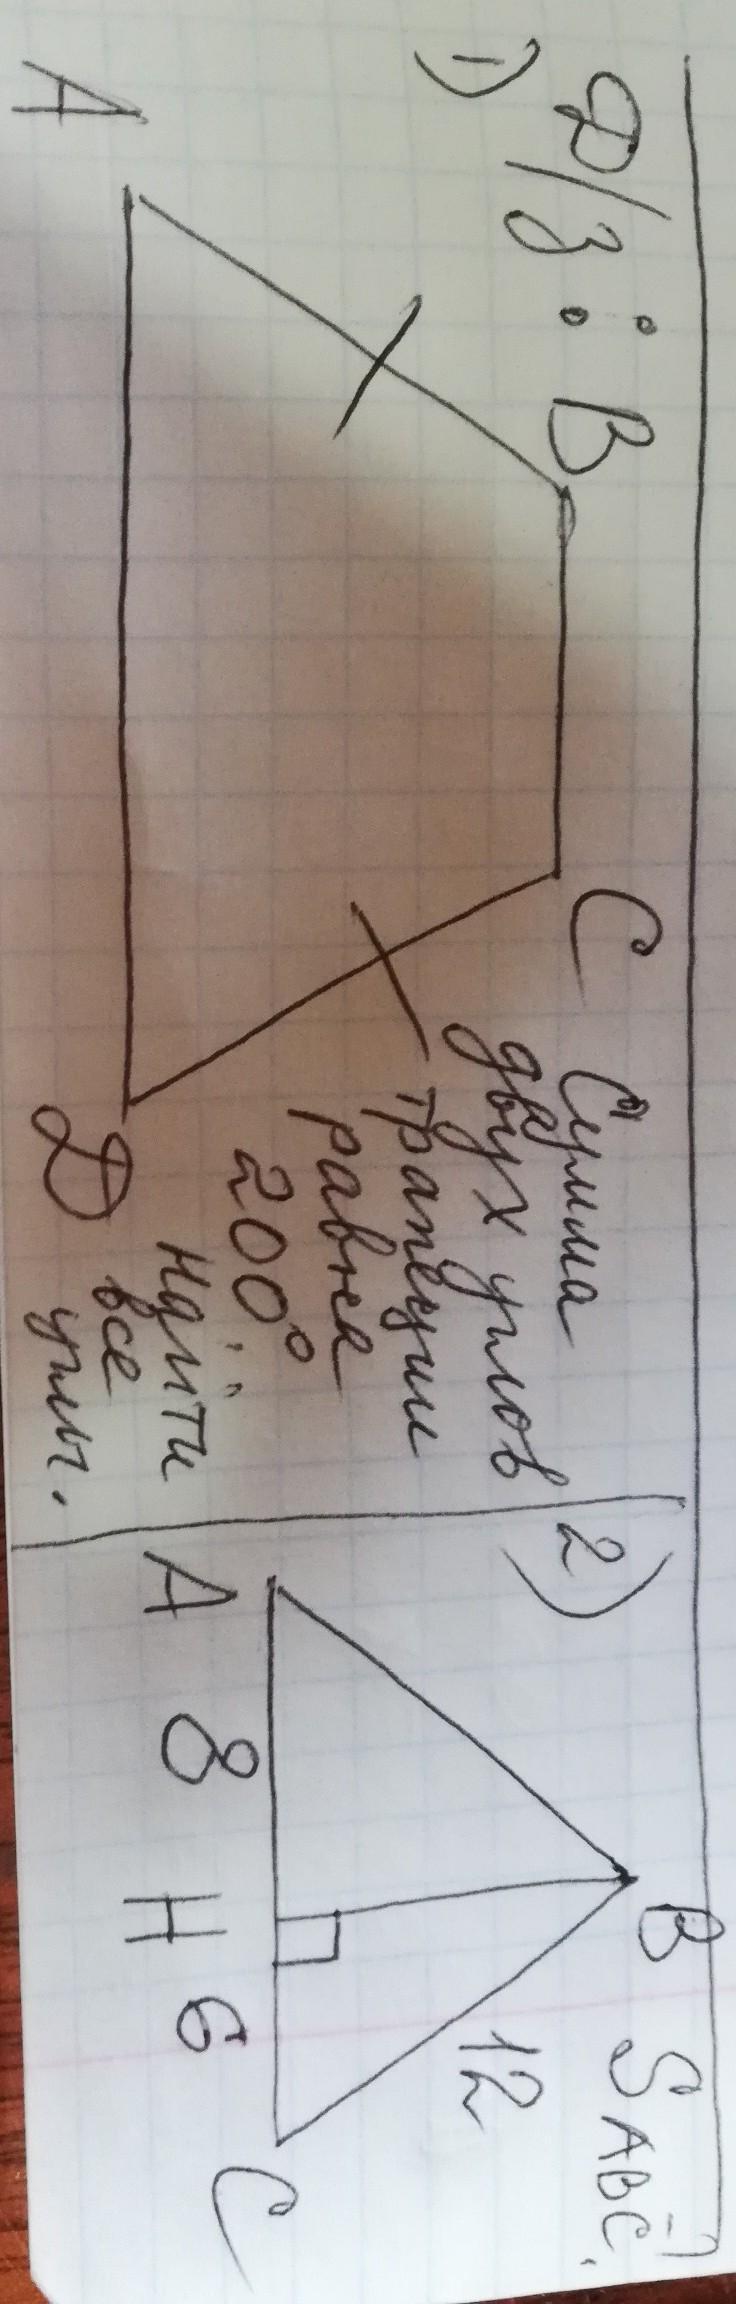 Д/З:
1)
A
B
C
D
Сумма
двух углов
трапеции
равна
200°
Найти
все
углы.
2)
A
8
H
6
C
B
12
S ABC.-?